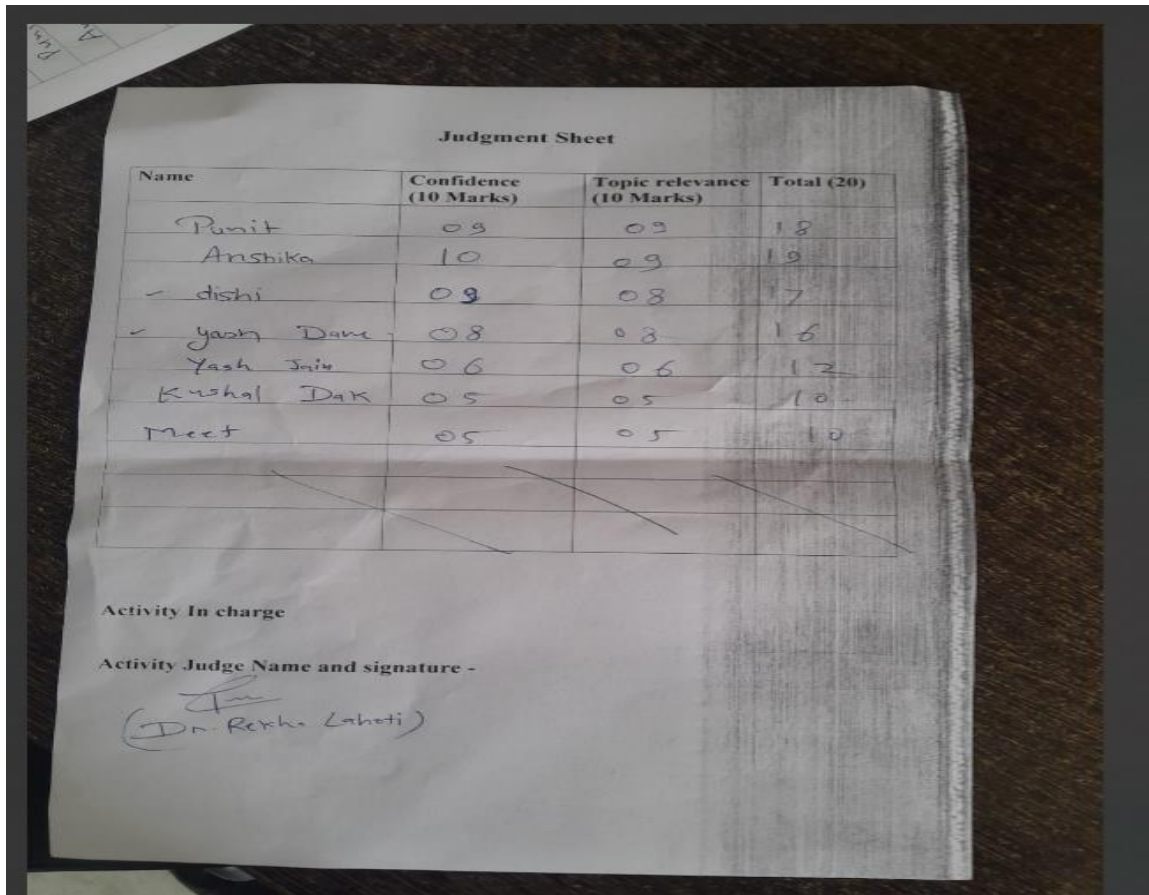 Puni
A
Judgment Sheet
Name Confidence (10 Marks) Topic relevance (10 Marks) Total (20)
Punit 09 09 18
Anshika 10 09 19
dishi 09 08 17
yash Dave 08 08 16
Yash Jain 06 06 12
Kushal Dak 05 05 10
Meet 05 05 10
Activity In charge
Activity Judge Name and signature -
(Dr. Rekha Lahoti)